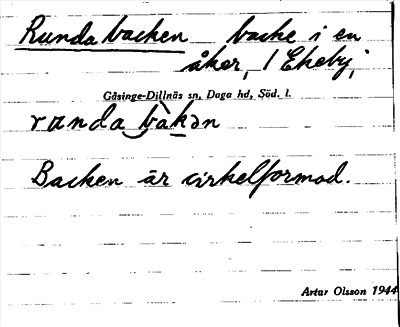 Runda backen backe i en
åker, / Ekeby,
Gåsinge-Dillnäs sn, Daga hd, Söd. l.
runda bàkən
Backen är cirkelformad.
Artur Olsson 1944